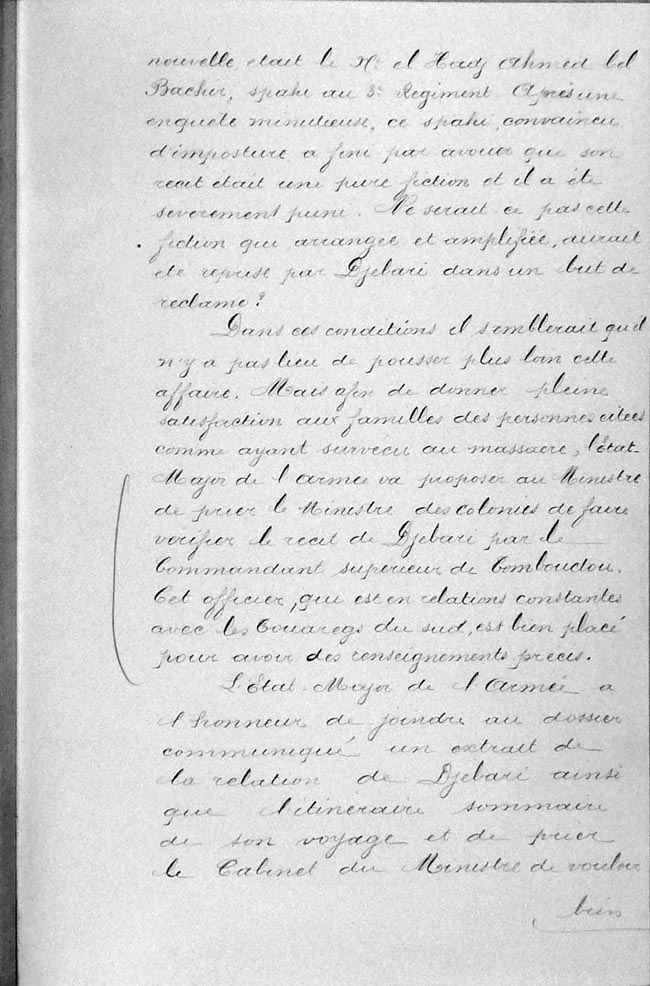 nouvelle était le Né el Hadj Ahmed bel
Bachir, spahi au 3e Regiment. Après une
enquête minutieuse, ce spahi, convaincu
d'imposture a fini par avouer que son
récit était une pure fiction et il a été
sévèrement puni. Ne serait-ce pas cette
fiction qui arrangée et amplifiée, aurait
été reprise par Djebari dans un but de
réclame?
Dans ces conditions il semblerait qu'il
n'y a pas lieu de pousser plus loin cette
affaire. Mais afin de donner pleine
satisfaction aux familles des personnes citées
comme ayant survécu au massacre, l'Etat-
Major de l'armée va proposer au Ministre
de prier le Ministre des colonies de faire
vérifier le récit de Djebari par le
Commandant supérieur de Tombouctou.
Cet officier, qui est en relations constantes
avec les Touaregs du sud, est bien placé
pour avoir des renseignements précis.
L'Etat-Major de l'Armée a
l'honneur de joindre au dossier
communiqué un extrait de
la relation de Djebari ainsi
que l'itinéraire sommaire
de son voyage et de prier
le Cabinet du Ministre de vouloir
bien